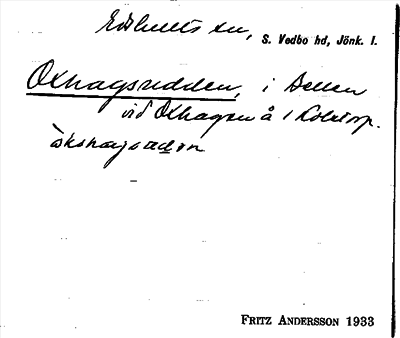 Edshults sn, S. Vedbo hd, Jönk. l.
Oxhagsudden, i Dellen
vid Oxhagen å 1 Kolstorp.
òkshagsudən
FRITZ ANDERSSON 1933